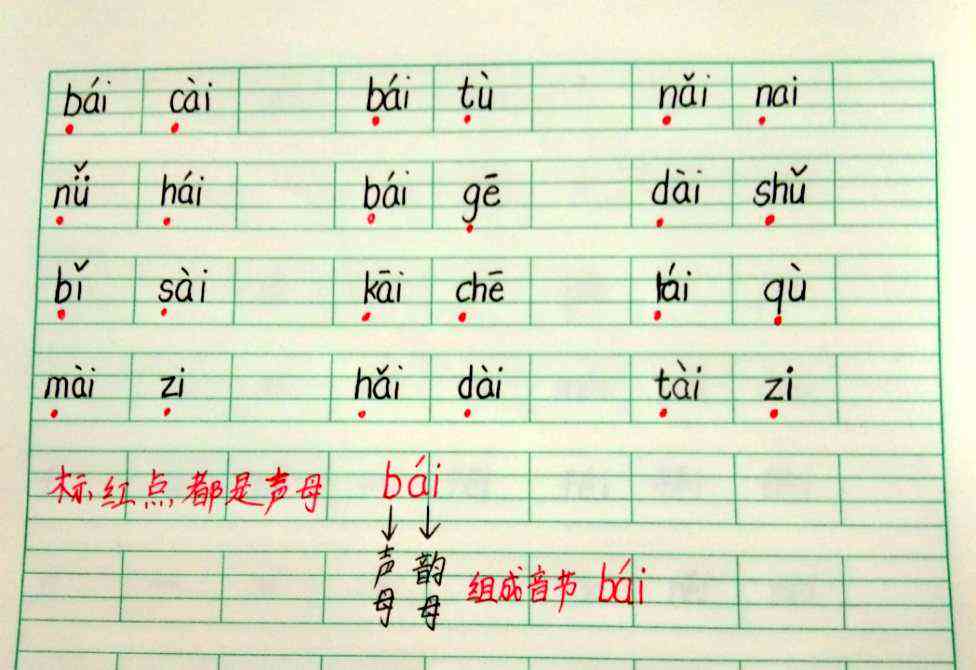 bái cài bái tù nǎi nai
nǚ hái bái gē dài shǔ
bǐ sài kāi chē lái qù
mài zi hǎi dài tài zi
标红点都是声母 bái
声母 韵母 组成音节 bái